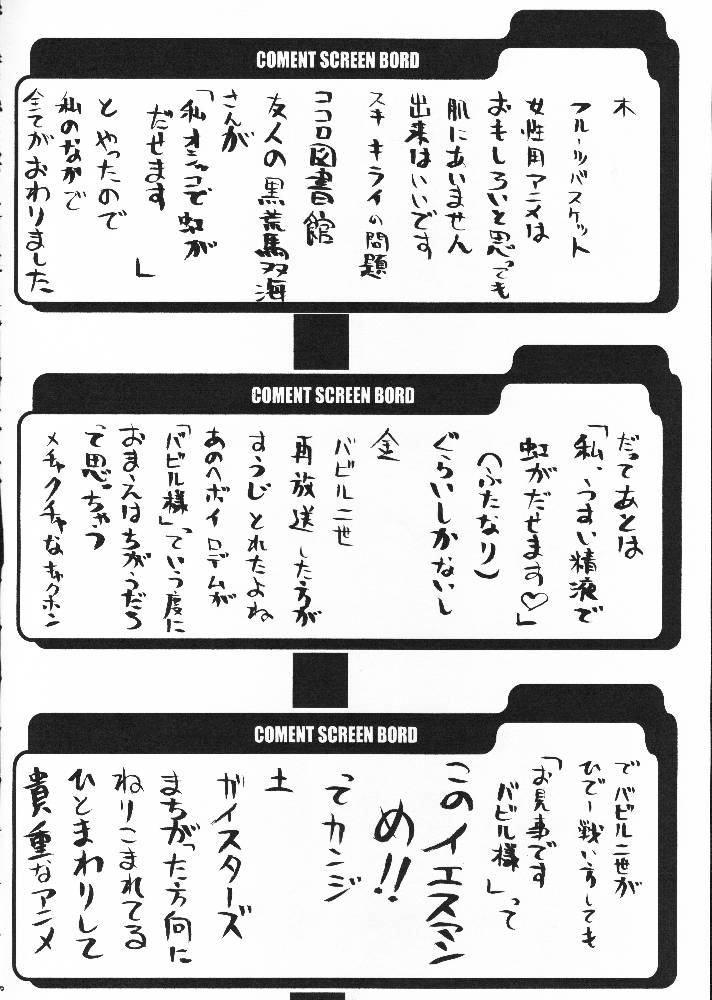 COMENT SCREEN BORD
木
フルーツバスケット
女性用アニメは
おもしろいと思っても
肌にあいません
出来はいいです
スキ キライの問題
ココロ図書館
友人の黒荒馬双海
さんが
「私オシッコで虹が
だせます
」
とやったので
私のなかで
全てがおわりました
COMENT SCREEN BORD
だってあとは
「私、うすい精液で
虹がだせます♡」
(ふたなり)
ぐらいしかないし
金
バビル二世
再放送した方が
すうじとれたよね
あのヘボイロデムが
「バビル様」っていう度に
おまえはちがうだろ
って思っちゃう
メチャクチャなキャクホン
COMENT SCREEN BORD
でバビル二世が
ひでー戦い方しても
「お見事です
バビル様」って
このイエスマン
め!!
てカンジ
土
ガイスターズ
まちがった方向に
ねりこまれてる
ひとまわりして
貴重なアニメ